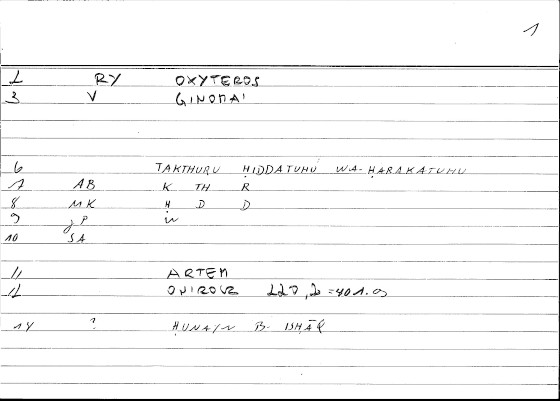 1
1 RY OXYTEROS
3 V GINOMAI
6 TAKTHURU ḤIDDATUHŪ WA-ḤARAKATUHU
7 AB K TH R
8 MK Ḥ D D
9 gP W
10 SA
11 ARTEM
12 ONIROCR 220,2 =401.
14 ? ḤUNAIN B- ISHĀQ